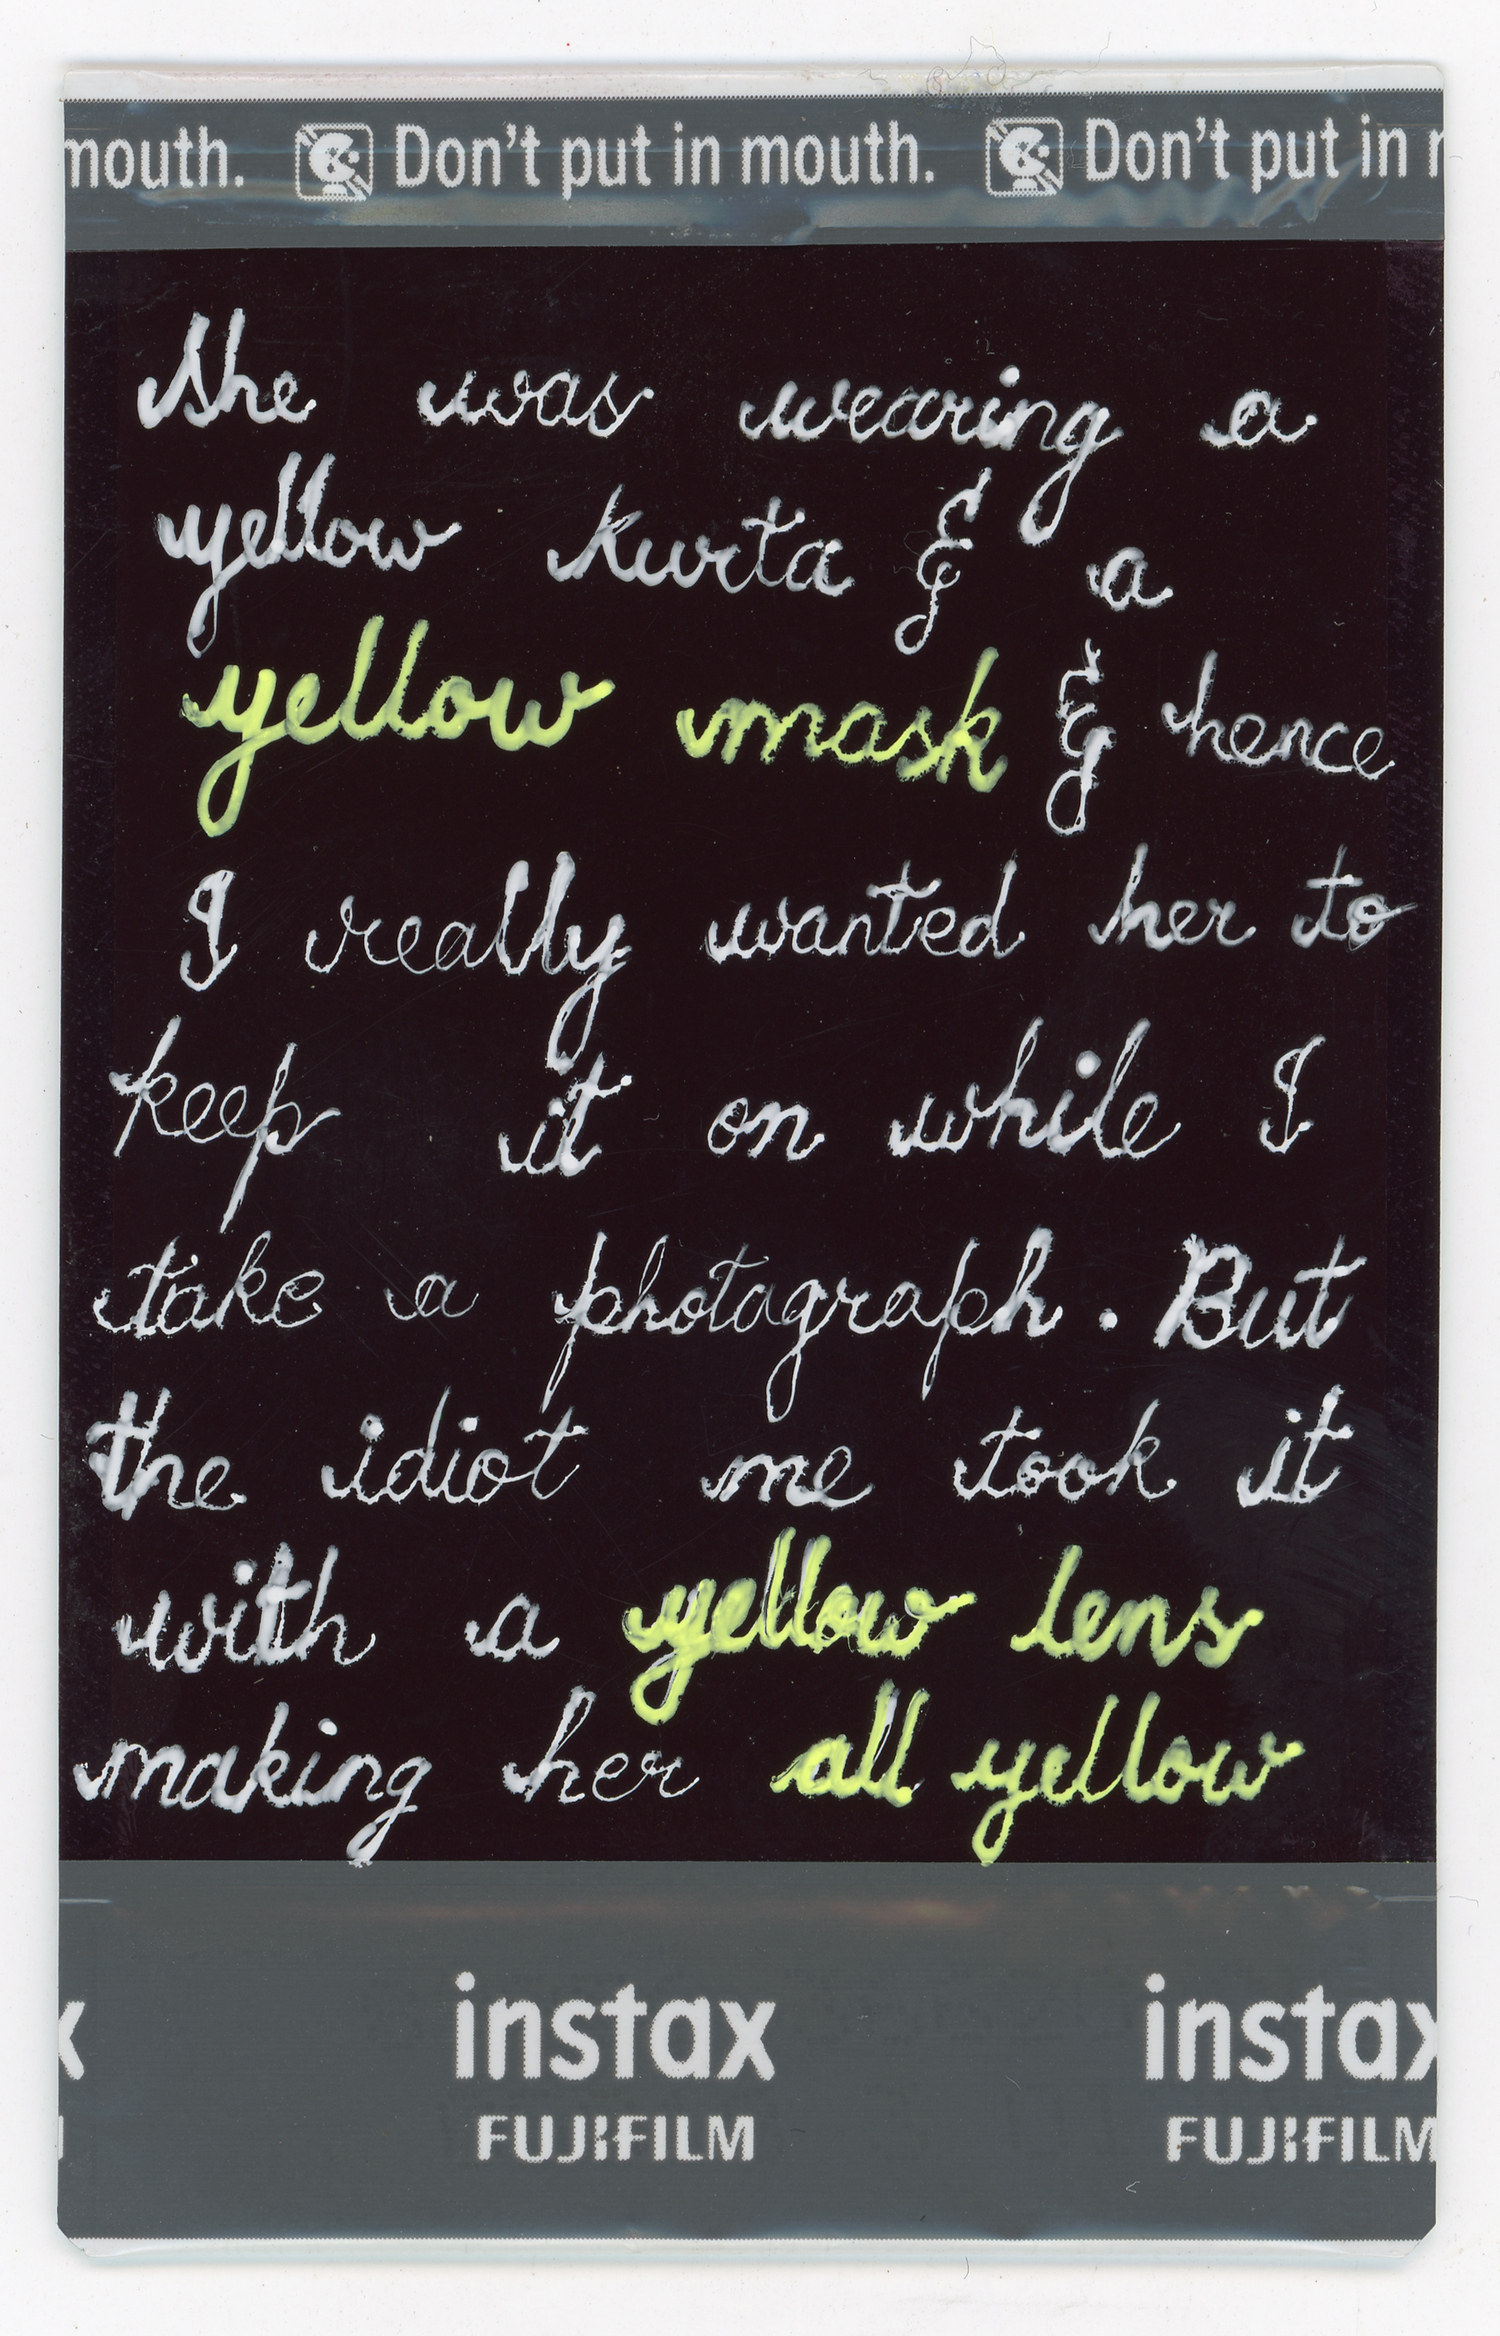 mouth. Don't put in mouth. Don't put in
She was wearing a
yellow kurta & a
yellow mask & hence
I really wanted her to
keep it on while I
take a photograph. But
the idiot me took it
with a yellow lens
making her all yellow
x instax instax
FUJIFILM FUJIFILM